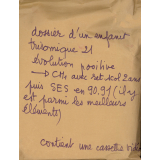 dossier d'un enfant
trisomique 21
évolution positive
→ CM1 avec ret scol 2 ans
puis SES en 90.91 (il y
est parmi les meilleurs
éléments)
contient une cassette